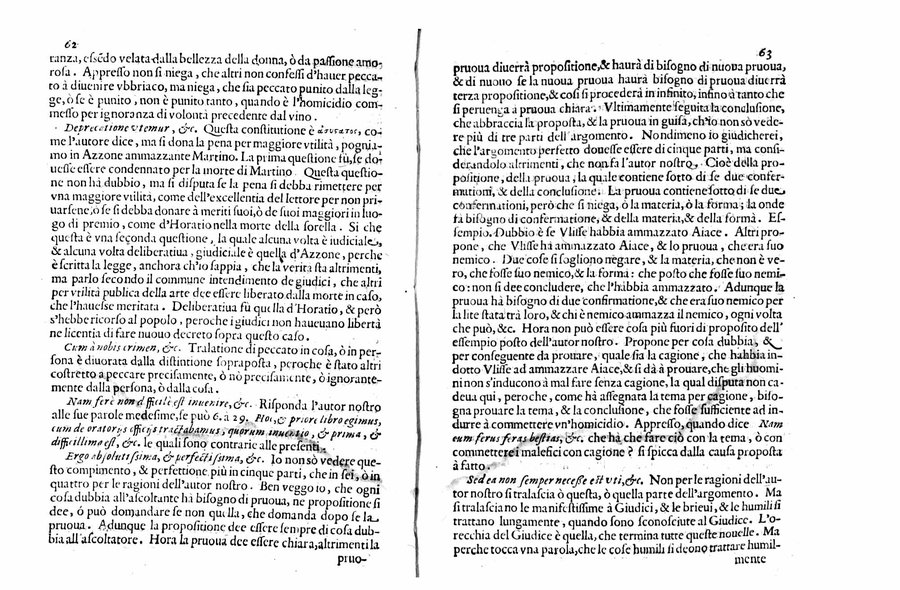 62
ranza, essēdo velata dalla bellezza della donna, ò da passione amo-
rosa. Appresso non si niega, che altri non confessi d'hauer pecca-
to à diuenire vbbriaco, ma niega, che sia peccato punito dalla leg-
ge, ò se è punito, non è punito tanto, quando è l'homicidio com-
messo per ignoranza di volontà precedente dal vino.
Deprecatione vtemur, &c. Questa constitutione è co-
me l'autore dice, ma si dona la pena per maggiore vtilità, pognia-
mo in Azzone ammazzante Martino. La prima questione fù, se do-
uesse essere condennato per la morte di Martino. Questa questio-
ne non hà dubbio, ma si disputa se la pena si debba rimettere per
vna maggiore vtilità, come dell'excellentia del lettore per non pri-
uarsene, o se si debba donare à meriti suoi, ò de suoi maggiori in luo-
go di premio, come d'Horatio nella morte della sorella. Si che
questa è vna seconda questione, la quale alcuna volta è iudiciale,
& alcuna volta deliberatiua, giudiciale è quella d'Azzone, perche
è scritta la legge, anchora ch'io sappia, che la verità sta altrimenti,
ma parlo secondo il commune intendimento de giudici, che altri
per vtilità publica della arte dee essere liberato dalla morte in caso,
che l'hauesse meritata. Deliberatiua fù quella d'Horatio, & però
s'hebbe ricorso al popolo, peroche i giudici non haueuano libertà
ne licentia di fare nuouo decreto sopra questo caso.
Cum à nobis crimen, &c. Tralatione di peccato in cosa, ò in per-
sona è diuorata dalla distintione sopraposta, perche è stato altri
costretto a peccare precisamente, ò nō precisamente, ò ignorante-
mente dalla persona, ò dalla cosa.
Nam fere non difficili est inuenire, &c. Risponda l'autor nostro
alle sue parole medesime, se può 6. a 29. Hoc, & priore libro egimus,
cum de oratoris officijs tractabamus, quorum inuentio, & prima, &
difficillima est, &c. le quali sono contrarie alle presenti.
Ergo absolutissima, & perfectissima, &c. Io non sò vedere que-
sto compimento, & perfettione più in cinque parti, che in sei, ò in
quattro per le ragioni dell'autor nostro. Ben veggo io, che ogni
cosa dubbia all'ascoltante hà bisogno di pruoua, ne propositione si
dee, ó può domandare se non quella, che domanda dopo se la
pruoua. Adunque la propositione dee essere sempre di cosa dub-
bia all'ascoltatore. Hora la pruoua dee essere chiara, altrimenti la
pruo-
63
pruoua diuerrà propositione, & haurà di bisogno di nuoua pruoua,
& di nuouo se la nuoua pruoua haurà bisogno di pruoua diuerrà
terza propositione, & così si procederà in infinito, infino à tanto che
si peruenga à pruoua chiara. Vltimamente seguita la conclusione,
che abbraccia la proposta, & la pruoua in guisa, ch'io non sò vede-
re più di tre parti dell'argomento. Nondimeno io giudicherei,
che l'argomento perfetto douesse essere di cinque parti, ma consi-
derandolo altrimenti, che non fa l'autor nostro. Cioè della pro-
positione, della pruoua, la quale contiene sotto di se due confer-
mationi, & della conclusione. La pruoua contiene sotto di se due
confermationi, però che si niega, ò la materia, ò la forma; la onde
fà bisogno di confermatione, & della materia, & della forma. Es-
sempio. Dubbio è se Vlisse habbia ammazzato Aiace. Altri pro-
pone, che Vlisse hà ammazzato Aiace, & lo pruoua, che era suo
nemico. Due cose si sogliono negare, & la materia, che non è ve-
ro, che fosse suo nemico, & la forma: che posto che fosse suo nemi-
co: non si dee concludere, che l'habbia ammazzato. Adunque la
pruoua hà bisogno di due confirmatione, & che era suo nemico per
la lite stata trà loro, & chi è nemico ammazza il nemico, ogni volta
che può, &c. Hora non può essere cosa più fuori di proposito dell'
essempio posto dell'autor nostro. Propone per cosa dubbia, &
per conseguente da prouare, quale sia la cagione, che habbia in-
dotto Vlisse ad ammazzare Aiace, & si dà à prouare, che gli huomi-
ni non s'inducono à mal fare senza cagione, la qual disputa non ca-
deua qui, peroche, come hà assegnata la tema per cagione, biso-
gna prouare la tema, & la conclusione, che fosse sufficiente ad in-
durre à commettere vn'homicidio. Appresso, quando dice Nam
eum ferus feras bestias, &c. che hà che fare ciò con la tema, ò con
commettere i malefici con cagione? si spicca dalla causa proposta
à fatto.
Sed ea non semper necesse est vti, &c. Non per le ragioni dell'au-
tor nostro si tralascia ò questa, ò quella parte dell'argomento. Ma
si tralasciano le manifestissime à Giudici, & le brieui, & le humili si
trattano lungamente, quando sono sconosciute al Giudice. L'o-
recchia del Giudice è quella, che termina tutte queste nouelle. Ma
perche tocca vna parola, che le cose humili si deono trattare humil-
mente